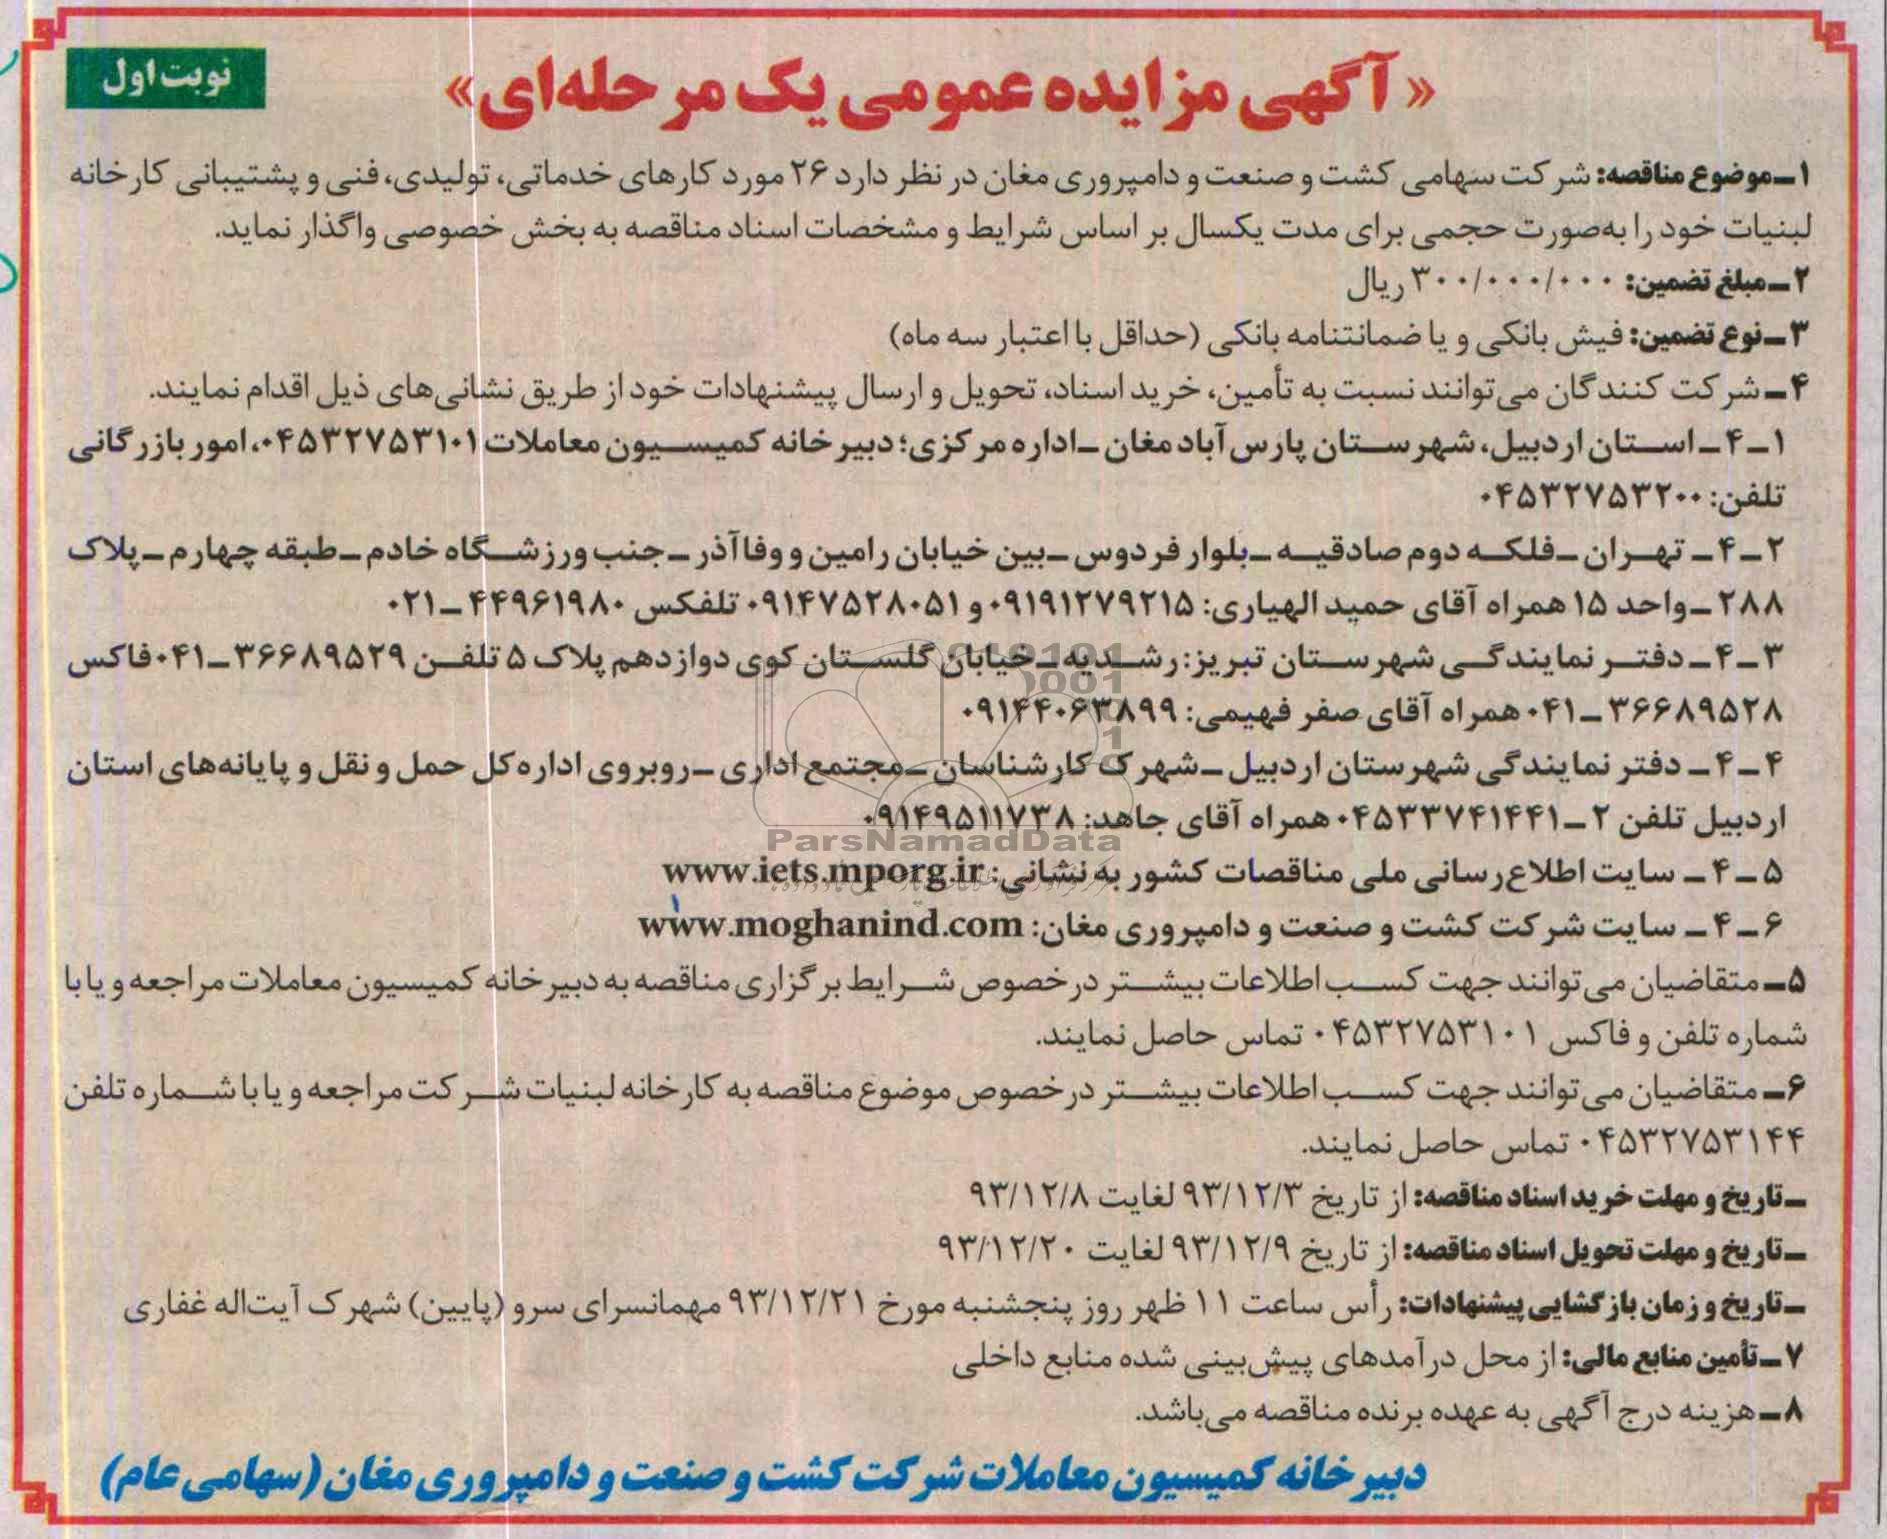 نوبت اول
« آگهی مزایده عمومی یک مرحله‌ای»
۱ـ موضوع مناقصه: شرکت سهامی کشت و صنعت و دامپروری مغان در نظر دارد ۲۶ مورد کارهای خدماتی، تولیدی، فنی و پشتیبانی کارخانه
لبنیات خود را به‌صورت حجمی برای مدت یکسال بر اساس شرایط و مشخصات اسناد مناقصه به بخش خصوصی واگذار نماید.
۲ـ مبلغ تضمین: ۳۰۰/۰۰۰/۰۰۰ ریال
۳ـ نوع تضمین: فیش بانکی و یا ضمانتنامه بانکی (حداقل با اعتبار سه ماه)
۴ـ شرکت کنندگان می‌توانند نسبت به تأمین، خرید اسناد، تحویل و ارسال پیشنهادات خود از طریق نشانی‌های ذیل اقدام نمایند.
۱ـ۴ـ استان اردبیل، شهرستان پارس‌آباد مغان ـ اداره مرکزی؛ دبیرخانه کمیسیون معاملات ۰۴۵۳۲۷۵۳۱۰۱، امور بازرگانی
تلفن: ۰۴۵۳۲۷۵۳۲۰۰
۲ـ۴ـ تهران ـ فلکه دوم صادقیه ـ بلوار فردوس ـ بین خیابان رامین و وفاآذر ـ جنب ورزشگاه خادم ـ طبقه چهارم ـ پلاک
۲۸۸ ـ واحد ۱۵ همراه آقای حمید الهیاری: ۰۹۱۹۱۲۷۹۲۱۵ و ۰۹۱۴۷۵۲۸۰۵۱ تلفکس ۴۴۹۶۱۹۸۰ـ۰۲۱
۳ـ۴ـ دفتر نمایندگی شهرستان تبریز: رشدیه ـ خیابان گلستان کوی دوازدهم پلاک ۵ تلفن ۳۶۶۸۹۵۲۹ـ۰۴۱ فاکس
۳۶۶۸۹۵۲۸ـ۰۴۱ همراه آقای صفر فهیمی: ۰۹۱۴۴۰۶۳۸۹۹
۴ـ۴ـ دفتر نمایندگی شهرستان اردبیل ـ شهرک کارشناسان ـ مجتمع اداری ـ روبروی اداره کل حمل و نقل و پایانه‌های استان
اردبیل تلفن ۲ـ۰۴۵۳۳۷۴۱۴۴۱ همراه آقای جاهد: ۰۹۱۴۹۵۱۱۷۳۸
ParsNamadData
۵ـ۴ـ سایت اطلاع‌رسانی ملی مناقصات کشور به نشانی: www.iets.mporg.ir
۶ـ۴ـ سایت شرکت کشت و صنعت و دامپروری مغان: www.moghanind.com
۵ـ متقاضیان می‌توانند جهت کسب اطلاعات بیشتر در خصوص شرایط برگزاری مناقصه به دبیرخانه کمیسیون معاملات مراجعه و یا با
شماره تلفن و فاکس ۰۴۵۳۲۷۵۳۱۰۱ تماس حاصل نمایند.
۶ـ متقاضیان می‌توانند جهت کسب اطلاعات بیشتر در خصوص موضوع مناقصه به کارخانه لبنیات شرکت مراجعه و یا با شماره تلفن
۰۴۵۳۲۷۵۳۱۴۴ تماس حاصل نمایند.
ـ تاریخ و مهلت خرید اسناد مناقصه: از تاریخ ۹۳/۱۲/۳ لغایت ۹۳/۱۲/۸
ـ تاریخ و مهلت تحویل اسناد مناقصه: از تاریخ ۹۳/۱۲/۹ لغایت ۹۳/۱۲/۲۰
ـ تاریخ و زمان بازگشایی پیشنهادات: رأس ساعت ۱۱ ظهر روز پنجشنبه مورخ ۹۳/۱۲/۲۱ مهمانسرای سرو (پایین) شهرک آیت‌اله غفاری
۷ـ تأمین منابع مالی: از محل درآمدهای پیش‌بینی شده منابع داخلی
۸ـ هزینه درج آگهی به عهده برنده مناقصه می‌باشد.
دبیرخانه کمیسیون معاملات شرکت کشت و صنعت و دامپروری مغان (سهامی عام)